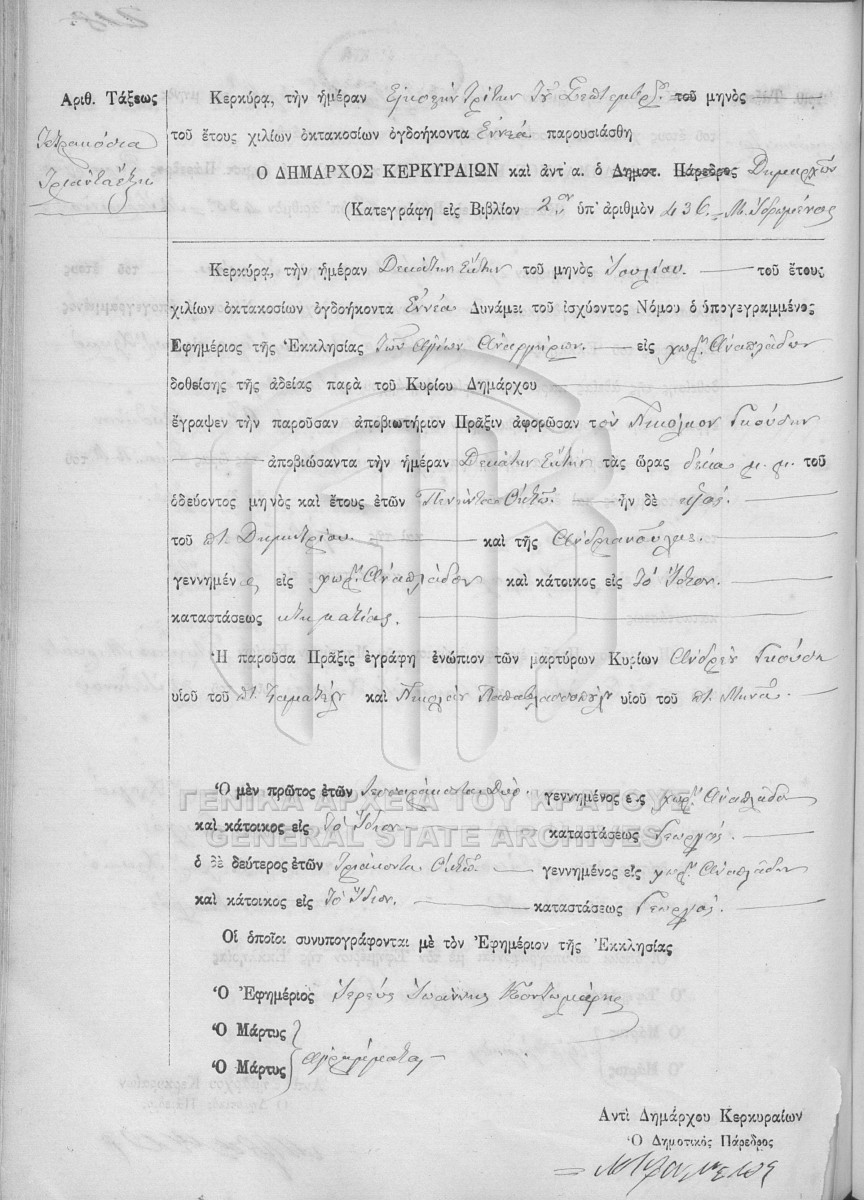 Ἀριθ. Τάξεως
Τετρακόσια
Τριάντα ἕξη
Κερκύρᾳ, τὴν ἡμέραν Εἰκοστὴν Τρίτην Τοῦ Σεπτεμβρ. τοῦ μηνὸς
τοῦ ἔτους χιλίων ὀκτακοσίων ὀγδοήκοντα Ἐννέα παρουσιάσθη
Ο ΔΗΜΑΡΧΟΣ ΚΕΡΚΥΡΑΙΩΝ καὶ ἀντ' α. ὁ Δημοτ. Πάρεδρος Δημαρχῶν
(Κατεγράφη εἰς Βιβλίον 2ον ὑπ' ἀριθμὸν 436.
Κερκύρᾳ, τὴν ἡμέραν Δεκάτην Ἕκτην τοῦ μηνὸς Ἰουλίου. τοῦ ἔτους
χιλίων ὀκτακοσίων ὀγδοήκοντα Ἐννέα Δυνάμει τοῦ ἰσχύοντος Νόμου ὁ ὑπογεγραμμένος
Ἐφημέριος τῆς Ἐκκλησίας Τῶν Ἁγίων Ἀναργύρων. εἰς χωρ. Ἀναπλάδων
δοθείσης τῆς ἀδείας παρὰ τοῦ Κυρίου Δημάρχου
ἔγραψεν τὴν παροῦσαν ἀποβιωτήριον Πρᾶξιν ἀφορῶσαν τὸν Νικόλαον Γκούσην
ἀποβιώσαντα τὴν ἡμέραν Δεκάτην Ἕκτην τὰς ὥρας δέκα μ. μ. τοῦ
ὁδεύοντος μηνὸς καὶ ἔτους ἐτῶν Πενήντα Ὀκτώ. ἦν δὲ υἱός.
τοῦ πτ. Δημητρίου. καὶ τῆς Ἀνδριανούλας.
γεννημένος εἰς χωρ. Ἀναπλάδων καὶ κάτοικος εἰς Τὸ Ἴδιον.
καταστάσεως κτηματίας.
Ἡ παροῦσα Πρᾶξις ἐγράφη ἐνώπιον τῶν μαρτύρων Κυρίων Ἀνδρέα Γκούση
υἱοῦ τοῦ πτ. Σταματέλη καὶ Νικολάου Παπαβλασσοπούλου υἱοῦ τοῦ πτ. Μηνᾶ.
Ὁ μὲν πρῶτος ἐτῶν Τεσσαράκοντα Δύο. γεννημένος εἰς χωρ. Ἀναπλάδων
καὶ κάτοικος εἰς Τὸ Ἴδιον. καταστάσεως Γεωργός.
ὁ δὲ δεύτερος ἐτῶν Τριάκοντα Ὀκτώ. γεννημένος εἰς χωρ. Ἀναπλάδων
καὶ κάτοικος εἰς Τὸ Ἴδιον. καταστάσεως Γεωργός.
Οἱ ὁποῖοι συνυπογράφονται μὲ τὸν Ἐφημέριον τῆς Ἐκκλησίας
Ὁ Ἐφημέριος Ἱερεὺς Ἰωάννης Κοντομάρης
Ὁ Μάρτυς
Ὁ Μάρτυς ἀγράμματοι
Ἀντὶ Δημάρχου Κερκυραίων
Ὁ Δημοτικὸς Πάρεδρος
ΓΕΝΙΚΑ ΑΡΧΕΙΑ ΤΟΥ ΚΡΑΤΟΥΣ
GENERAL STATE ARCHIVES